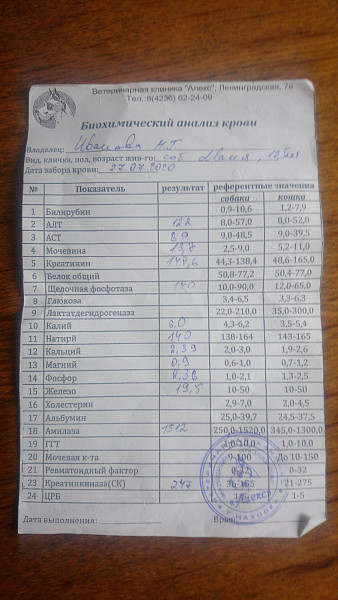 Ветеринарная клиника "Алекс", Ленинградская, 7а
Тел.:8(4236) 62-24-09
Биохимический анализ крови
Владелец: Иванова Н.Г
Вид, кличка, пол, возраст жив-го: соб
Дата забора крови: 27.07.2020
№ Показатель результат референтные значения
собаки кошки
1 Билирубин 0,9-10,6 1,2-7,9
2 АЛТ 122 8,0-57,0 8,0-52,0
3 АСТ 89 9,0-48,5 9,0-39,5
4 Мочевина 13,7 2,5-9,0 5,2-11,0
5 Креатинин 147,6 44,3-138,4 48,6-165,0
6 Белок общий 50,8-77,2 50,4-77,0
7 Щелочная фосфотаза 140 10,0-90,0 12,0-65,0
8 Глюкоза 3,4-6,5 3,3-6,3
9 Лактатдегидрогеназа 22,0-210,0 35,0-300,0
10 Калий 6,0 4,3-6,2 3,5-5,4
11 Натрий 140 138-164 143-165
12 Кальций 2,39 2,0-3,0 1,9-2,6
13 Магний 0,9 0,6-1,0 0,7-1,2
14 Фосфор 1,0-2,1 1,3-2,5
15 Железо 19,5 10-50 10-50
16 Холестерин 2,9-7,0 2,0-4,5
17 Альбумин 25,0-39,7 24,5-37,5
18 Амилаза 1512 250,0-1520,0 345,0-1300,0
19 ГГТ 1,0-10,0 1,0-10,0
20 Мочевая к-та 9-100 До 10-150
21 Ревматоидный фактор 0-32
23 Креатинкиназа(СК) 247 36-155 21-275
24 ЦРБ 1-5
Дата выполнения: Врач: